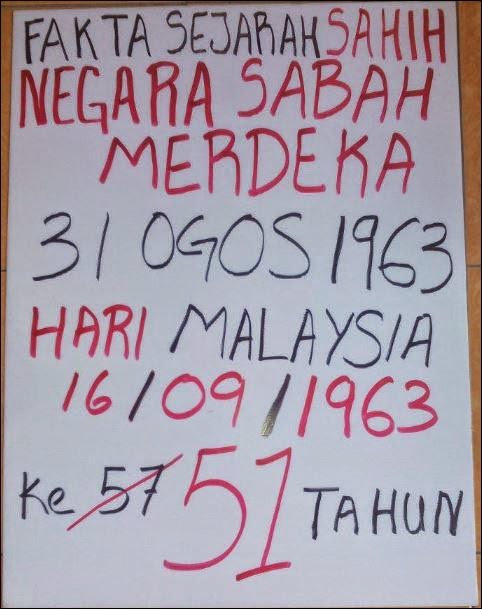 FAKTA SEJARAH SAHIH
NEGARA SABAH
MERDEKA
31 OGOS 1963
HARI MALAYSIA
16/09/1963
Ke 57 51 TAHUN